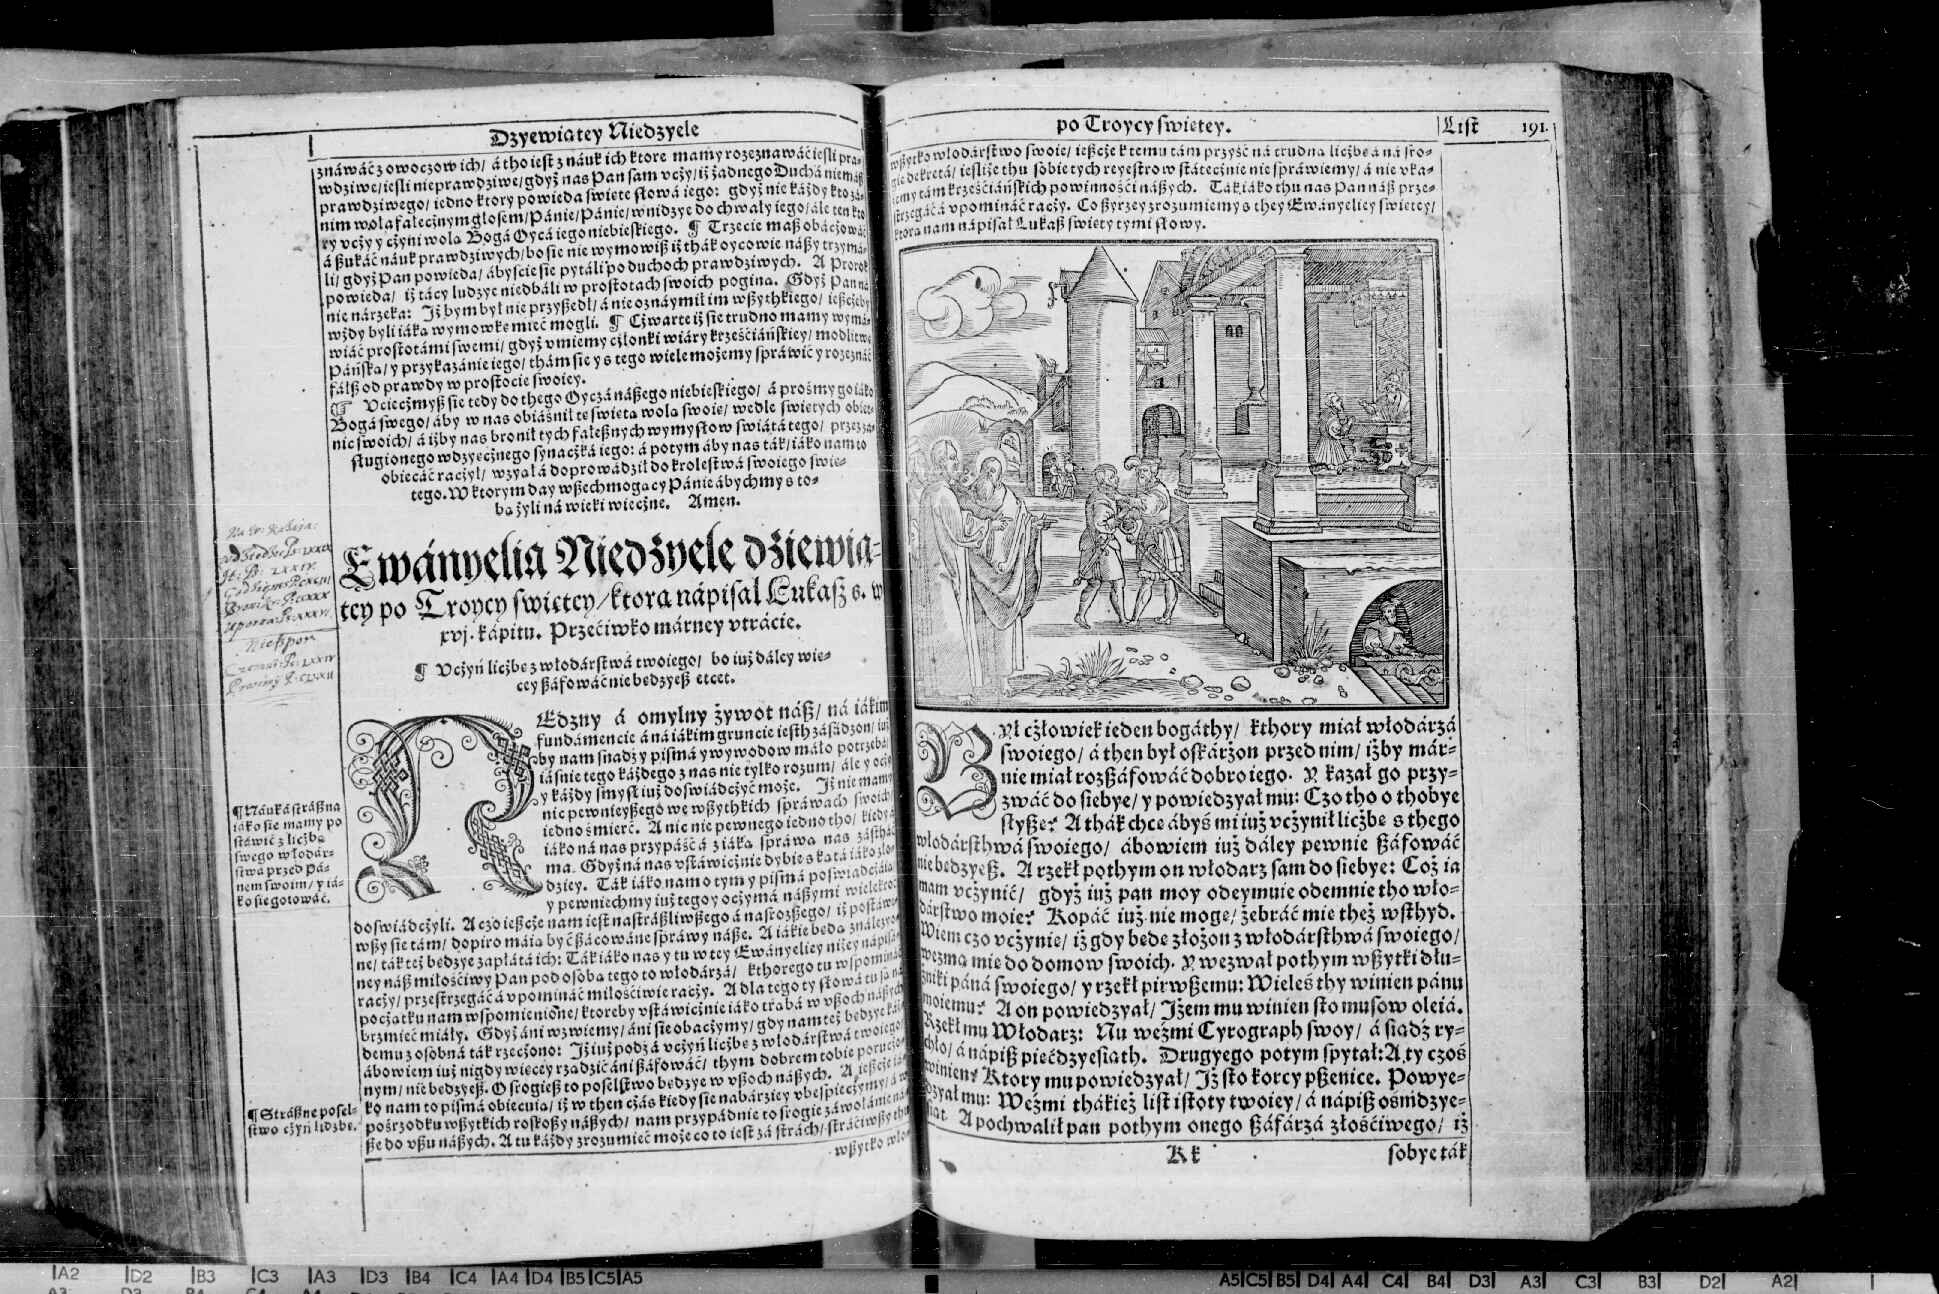 Dzyewiatey Niedzyele
znáwáć z owoczow ich/ á tho iest z náuk ich ktore mamy rozeznawáć iesli pra-
wdziwe/ iesli nieprawdziwe/ gdyż nas Pan sam vczy/ iż żadnego Duchá niemasz
prawdziwego/ iedno ktory powieda swiete słowá iego: gdyż nie káżdy kto zá-
nim woła fálecznym głosem/ Pánie/ Pánie/ wnidzye do chwały iego/ ále ten kto
ry vczy y czyni wola Bogá Oycá iego niebieskiego. ¶ Trzecie masz obáczowáć
á szukáć náuk prawdziwych/ bo sie nie wymowisz iż thák oycowie nászy trzymá-
li/ gdyż Pan powieda/ ábyscie sie pytáli po duchoch prawdziwych. A Prorok
powieda/ iż tácy ludzye niedbáli w prostotach swoich pogina. Gdyż Pan ná
nie nárzeka: Iż bym był nie przyszedł/ á nie oznáymił im wszythkiego/ ieszczeby
wżdy byli iáka wymowke mieć mogli. ¶ Czwarte iż sie trudno mamy wymá-
wiáć prostotámi swemi/ gdyż vmiemy członki wiáry krześćiáńskiey/ modlitwe
Páńska/ y przykazánie iego/ thám sie y s tego wiele możemy spráwić y rozeznáć
fálsz od prawdy w prostocie swoiey.
¶ Vciecżmysz sie tedy do thego Oyczá nászego niebieskiego/ á prośmy go iáko
Bogá swego/ áby w nas obiáśnił te swieta wola swoie/ wedle swietych obiet-
nic swoich/ á iżby nas bronił tych fálesznych wymysłow swiátá tego/ przez zá-
sługionego wdzyecznego synaczká iego: á potym áby nas ták/ iáko nam to
obiecáć raczył/ wzyał á doprowádził do krolestwá swoiego swie-
tego. W ktorym day wszechmogacy Pánie ábychmy s to-
ba żyli ná wieki wieczne. Amen.
Ewányelia Niedzyele dziewia-
tey po Troycy swietey/ ktora nápisał Lukasz s. w
xvj. kápitu. Przećiwko márney vtráćie.
¶ Vczyń liczbe z włodárstwá twoiego/ bo iuż dáley wie-
cey száfowáć nie bedzyesz etcet.
NEdzny á omylny żywot nász/ ná iákim
fundámencie á ná iákim gruncie iesth zásádzon/ iuż
by nam snadz y pismá y wywodow máło potrzebá/
iáśnie tego káżdego z nas nie tylko rozum/ ále y oczy
y káżdy smysł iuż doświádczyć może. Iż nie mamy
nic pewnieyszego we wszythkich spráwach swoich/
iedno śmierć. A nic nie pewnego iedno tho/ kiedy á
iáko ná nas przypáść á z iáka spráwa nas zásthác
ma. Gdyż ná nas vstáwicznie dybie s kata iáko zło-
dziey. Ták iáko nam o tym y pismá poświádczáia
y pewniechmy iuż tego y oczymá nászymi wielekroć
doświádczyli. A czo ieszcze nam iest nastrászliwszego á nasrozszego/ iż postáwi-
wszy sie tám/ dopiro máia być szácowáne spráwy násze. A iákie bedaználeyo-
ne/ ták też bedzye zapłátá ich: Ták iáko nas y tu w tey Ewányeliey niżey nápisá-
ney nász miłościwy Pan pod osoba tego to włodárzá/ kthorego tu wspomináć
raczy/ przestrzegáć á vpomináć miłościwie raczy. A dla tego ty słowá tu są ná
początku nam wspomienione/ ktoreby vstáwicznie iáko trabá w vszoch nászych
brzmieć miáły. Gdyż áni wzwiemy/ áni sie obaczymy/ gdy nam też bedzye káż-
demu z osobná ták rzeczono: Iż iuż podz á vczyń liczbe z włodárstwá twoiego/
ábowiem iuż nigdy wiecey rządzić áni száfowáć/ thym dobrem tobie poruczo-
nym/ nie bedzyesz. O srogiesz to poselstwo bedzye w vszoch nászych. A ieszcze iá-
ko nam to pismá obiecuia/ iż w then czás kiedy sie nabárziey vbespieczymy/ á w
pośrzodku wszytkich roskoszy nászych/ nam przypádnie to srogie záwołánie ná-
sze do vszu nászych. A tu káżdy zrozumieć może co to iest zá strách/ stráćiwszy thu
wszytko wło-
¶ Náuká strászna
iáko sie mamy po
stáwić z liczba
swego włodár-
stwá przed pá-
nem swoim/ y iá-
ko sie gotowáć.
¶ Strászne posel-
stwo czyń lidzbe.
po Troycy swietey.
List 191.
wszytko włodárstwo swoie/ ieszcze k temu tám przyść ná trudna liczbe á ná sro-
gie dekretá/ iesliże thu sobie tych reyestrow státecznie nie spráwiemy/ á nie vka-
żemy tám krześćiáńskich powinnośći nászych. Ták iáko thu nas Pan nász prze-
strzegáć á vpomináć raczy. Co szyrzey zrozumiemy s they Ewányeliey swietey/
ktora nam nápisał Lukasz swiety tymi słowy.
BYł człowiek ieden bogáthy/ kthory miał włodárzá
swoiego/ á then był oskárżon przed nim/ iżby már-
nie miał rozszáfowáć dobro iego. Y kazał go przy-
zwáć do siebye/ y powiedzyał mu: Czo tho o thobye
słysze? A thák chce ábyś mi iuż vczynił liczbe s thego
włodársthwá swoiego/ ábowiem iuż dáley pewnie száfowáć
nie bedzyesz. A rzekł pothym on włodarz sam do siebye: Coż ia
mam vczynić/ gdyż iuż pan moy odeymuie odemnie tho wło-
dárstwo moie? Kopáć iuż nie moge/ żebráć mie theż wsthyd.
Wiem czo vczynie/ iż gdy bede złożon z włodársthwá swoiego/
wezma mie do domow swoich. Y wezwał pothym wszytki dłu-
żniki páná swoiego/ y rzekł pirwszemu: Wieleś thy winien pánu
moiemu? A on powiedzyał/ Iżem mu winien sto musow oleiá.
Rzekł mu Włodarz: Nu weźmi Cyrograph swoy/ á siądź ry-
chło/ á nápisz pięćdzyesiath. Drugyego potym spytał: A ty czoś
winien? Ktory mu powiedzyał/ Iż sto korcy pszenice. Powye-
dzyał mu: Weźmi thákież list istoty twoiey/ á nápisz ośmdzye-
siat. A pochwalił pan pothym onego száfárzá złośćiwego/ iż
Kk
sobye ták